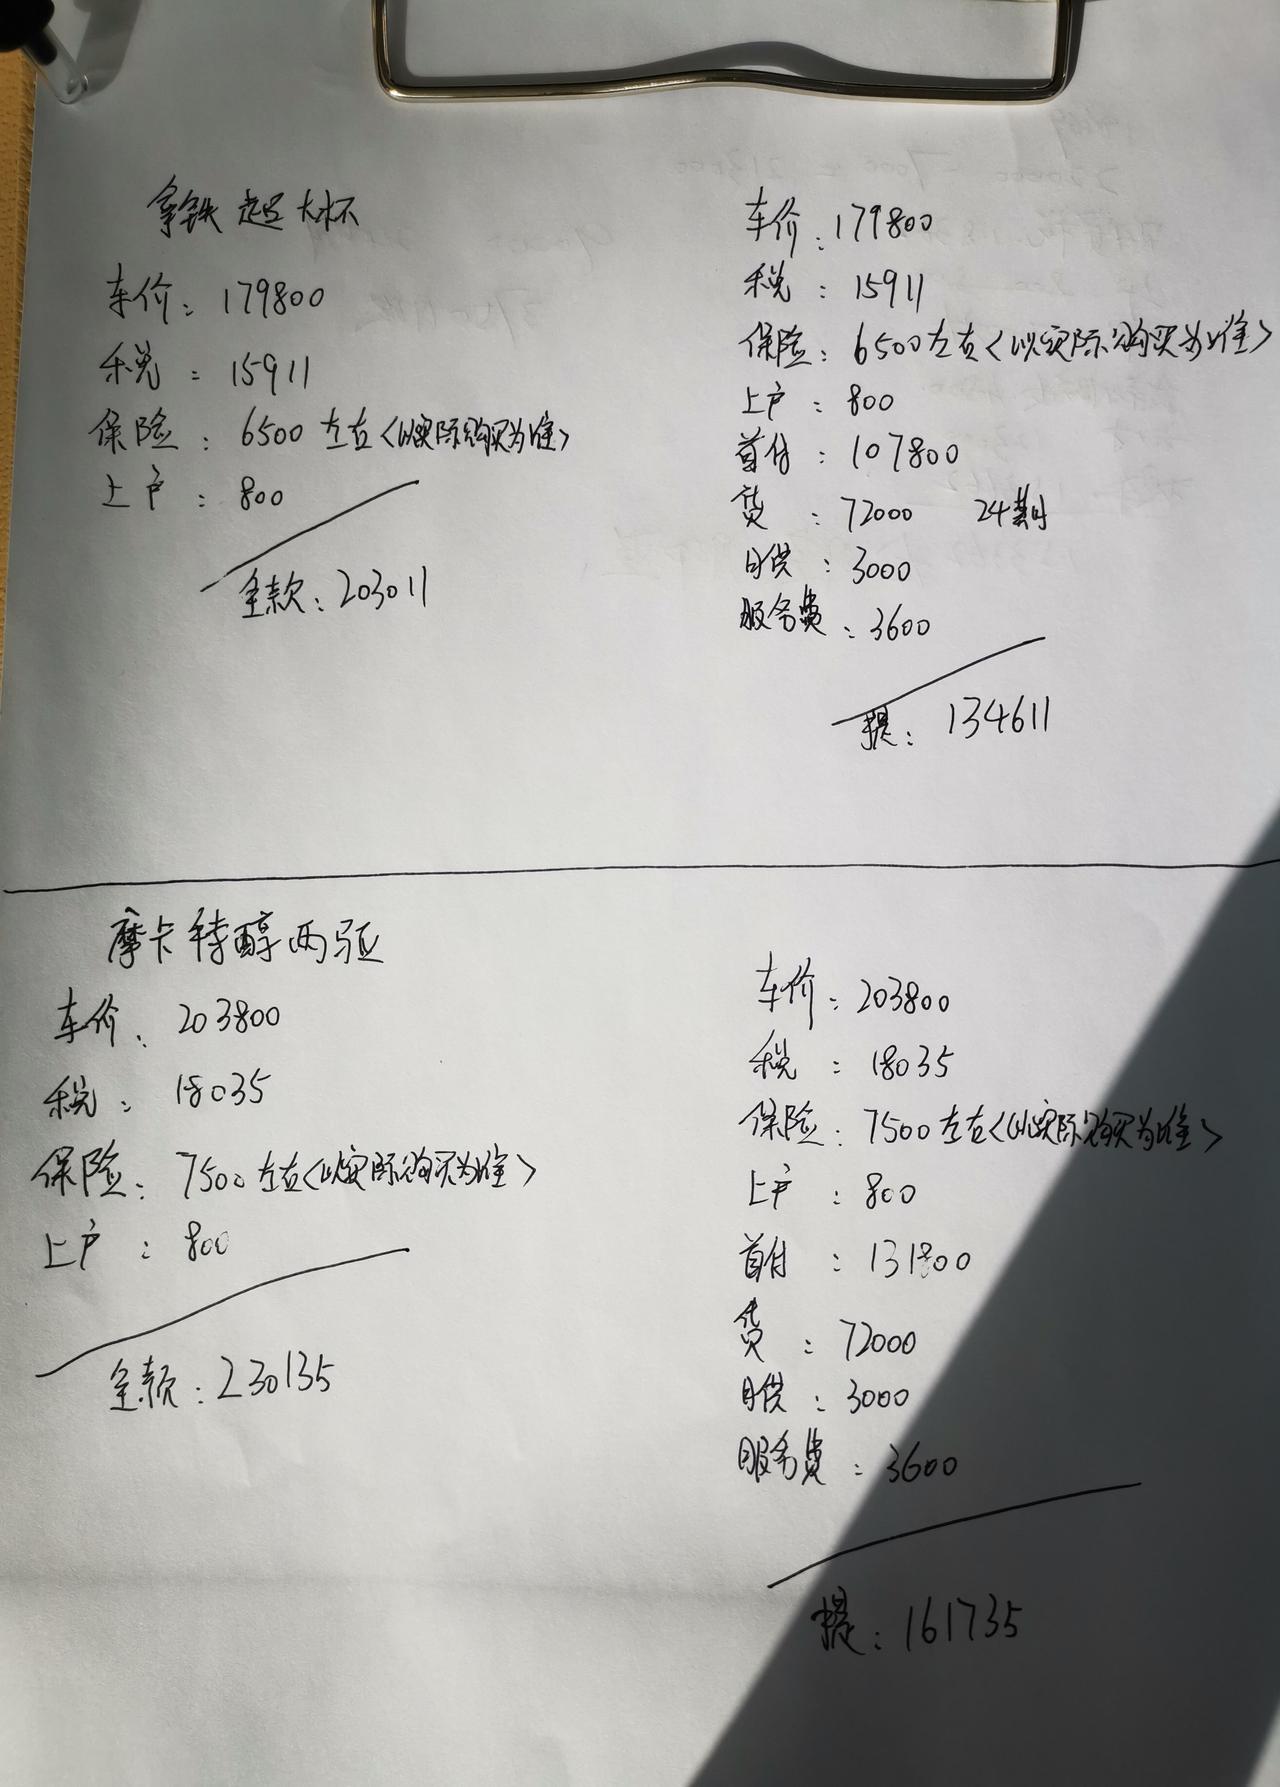 拿铁超大杯
车价：179800
税：15911
保险：6500左右<以实际购买为准>
上户：800
全款：203011
车价：179800
税：15911
保险：6500左右<以实际购买为准>
上户：800
首付：107800
贷：72000 24期
月供：3000
服务费：3600
提：134611
摩卡特醇两驱
车价：203800
税：18035
保险：7500左右<以实际购买为准>
上户：800
全款：230135
车价：203800
税：18035
保险：7500左右<以实际购买为准>
上户：800
首付：131800
贷：72000
月供：3000
服务费：3600
提：161735